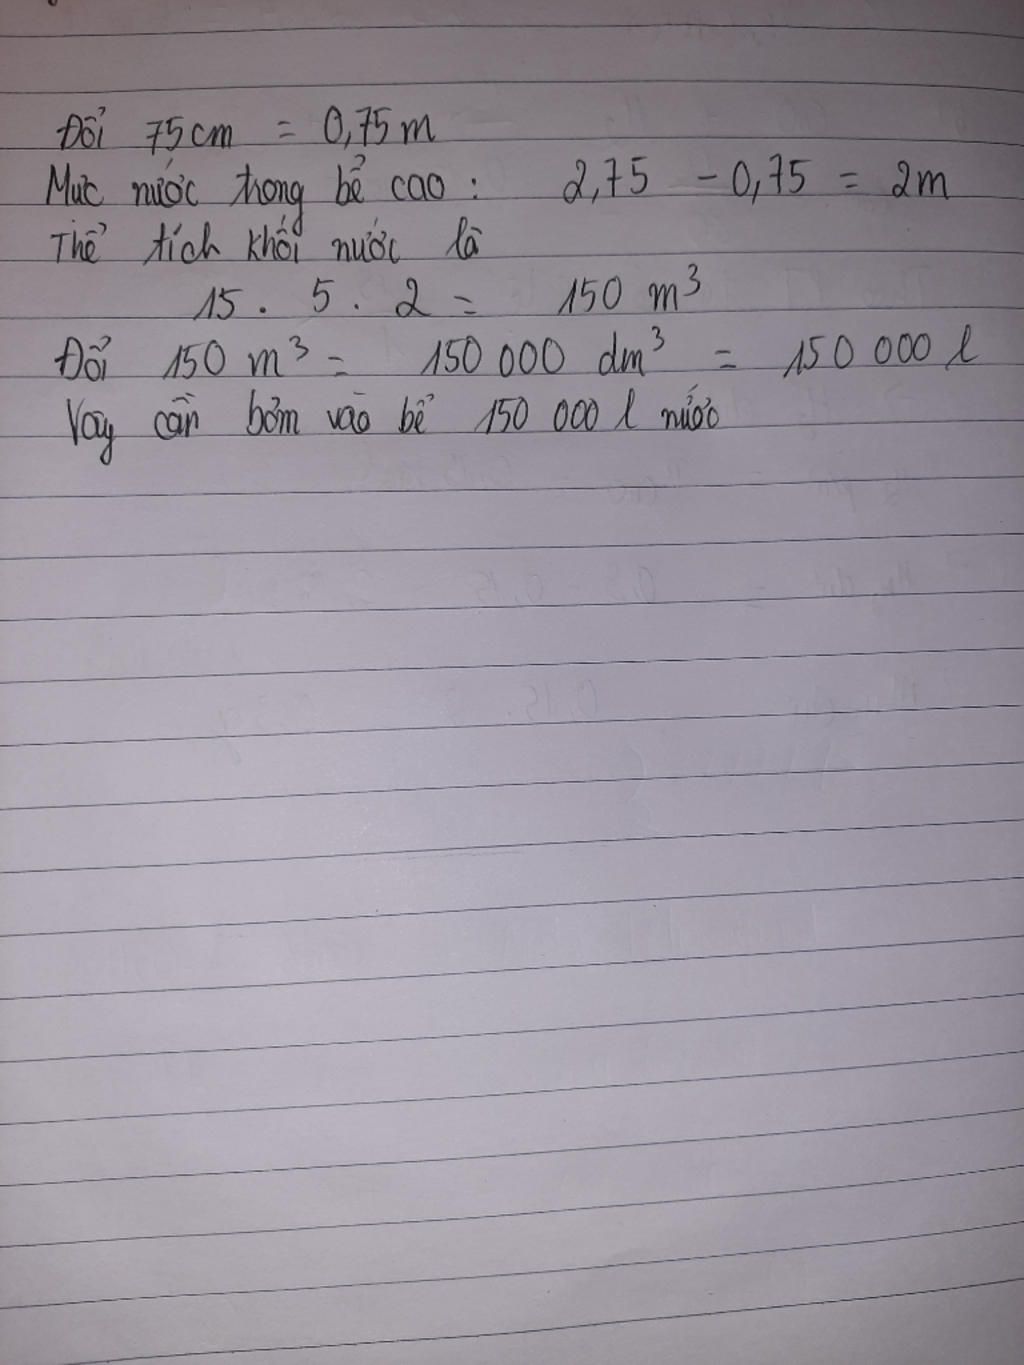 Đổi 75cm = 0,75m
Mực nước trong bể cao : 2,75 - 0,75 = 2m
Thể tích khối nước là
15 . 5 . 2 = 150 m³
Đổi 150 m³ = 150 000 dm³ = 150 000 l
Vậy cần bơm vào bể 150 000 l nước